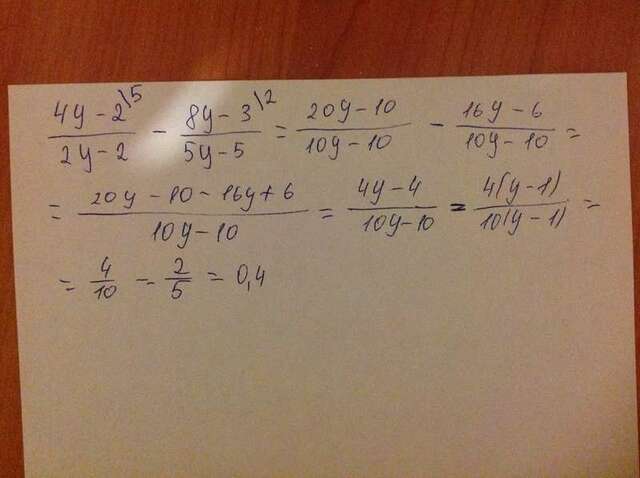 (4y-2)\5/(2y-2) - (8y-3)\2/(5y-5) = (20y-10)/(10y-10) - (16y-6)/(10y-10) =
= (20y-10-16y+6)/(10y-10) = (4y-4)/(10y-10) = 4(y-1)/10(y-1) =
= 4/10 = 2/5 = 0,4